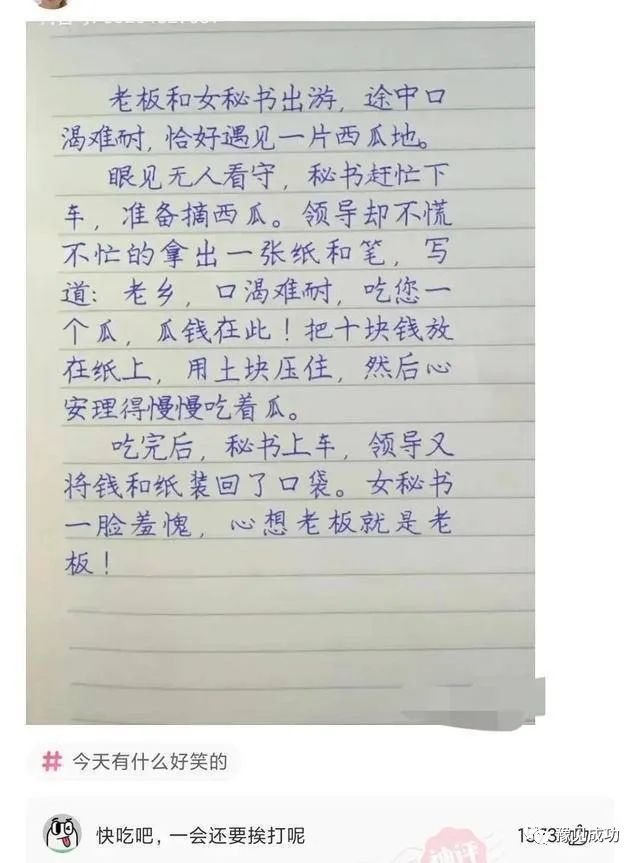 老板和女秘书出游，途中口
渴难耐，恰好遇见一片西瓜地。
眼见无人看守，秘书赶忙下
车，准备摘西瓜。领导却不慌
不忙的拿出一张纸和笔，写
道：老乡，口渴难耐，吃您一
个瓜，瓜钱在此！把十块钱放
在纸上，用土块压住，然后心
安理得慢慢吃着瓜。
吃完后，秘书上车，领导又
将钱和纸装回了口袋。女秘书
一脸羞愧，心想老板就是老
板！
# 今天有什么好笑的
快吃吧，一会还要挨打呢
神评
豫见成功